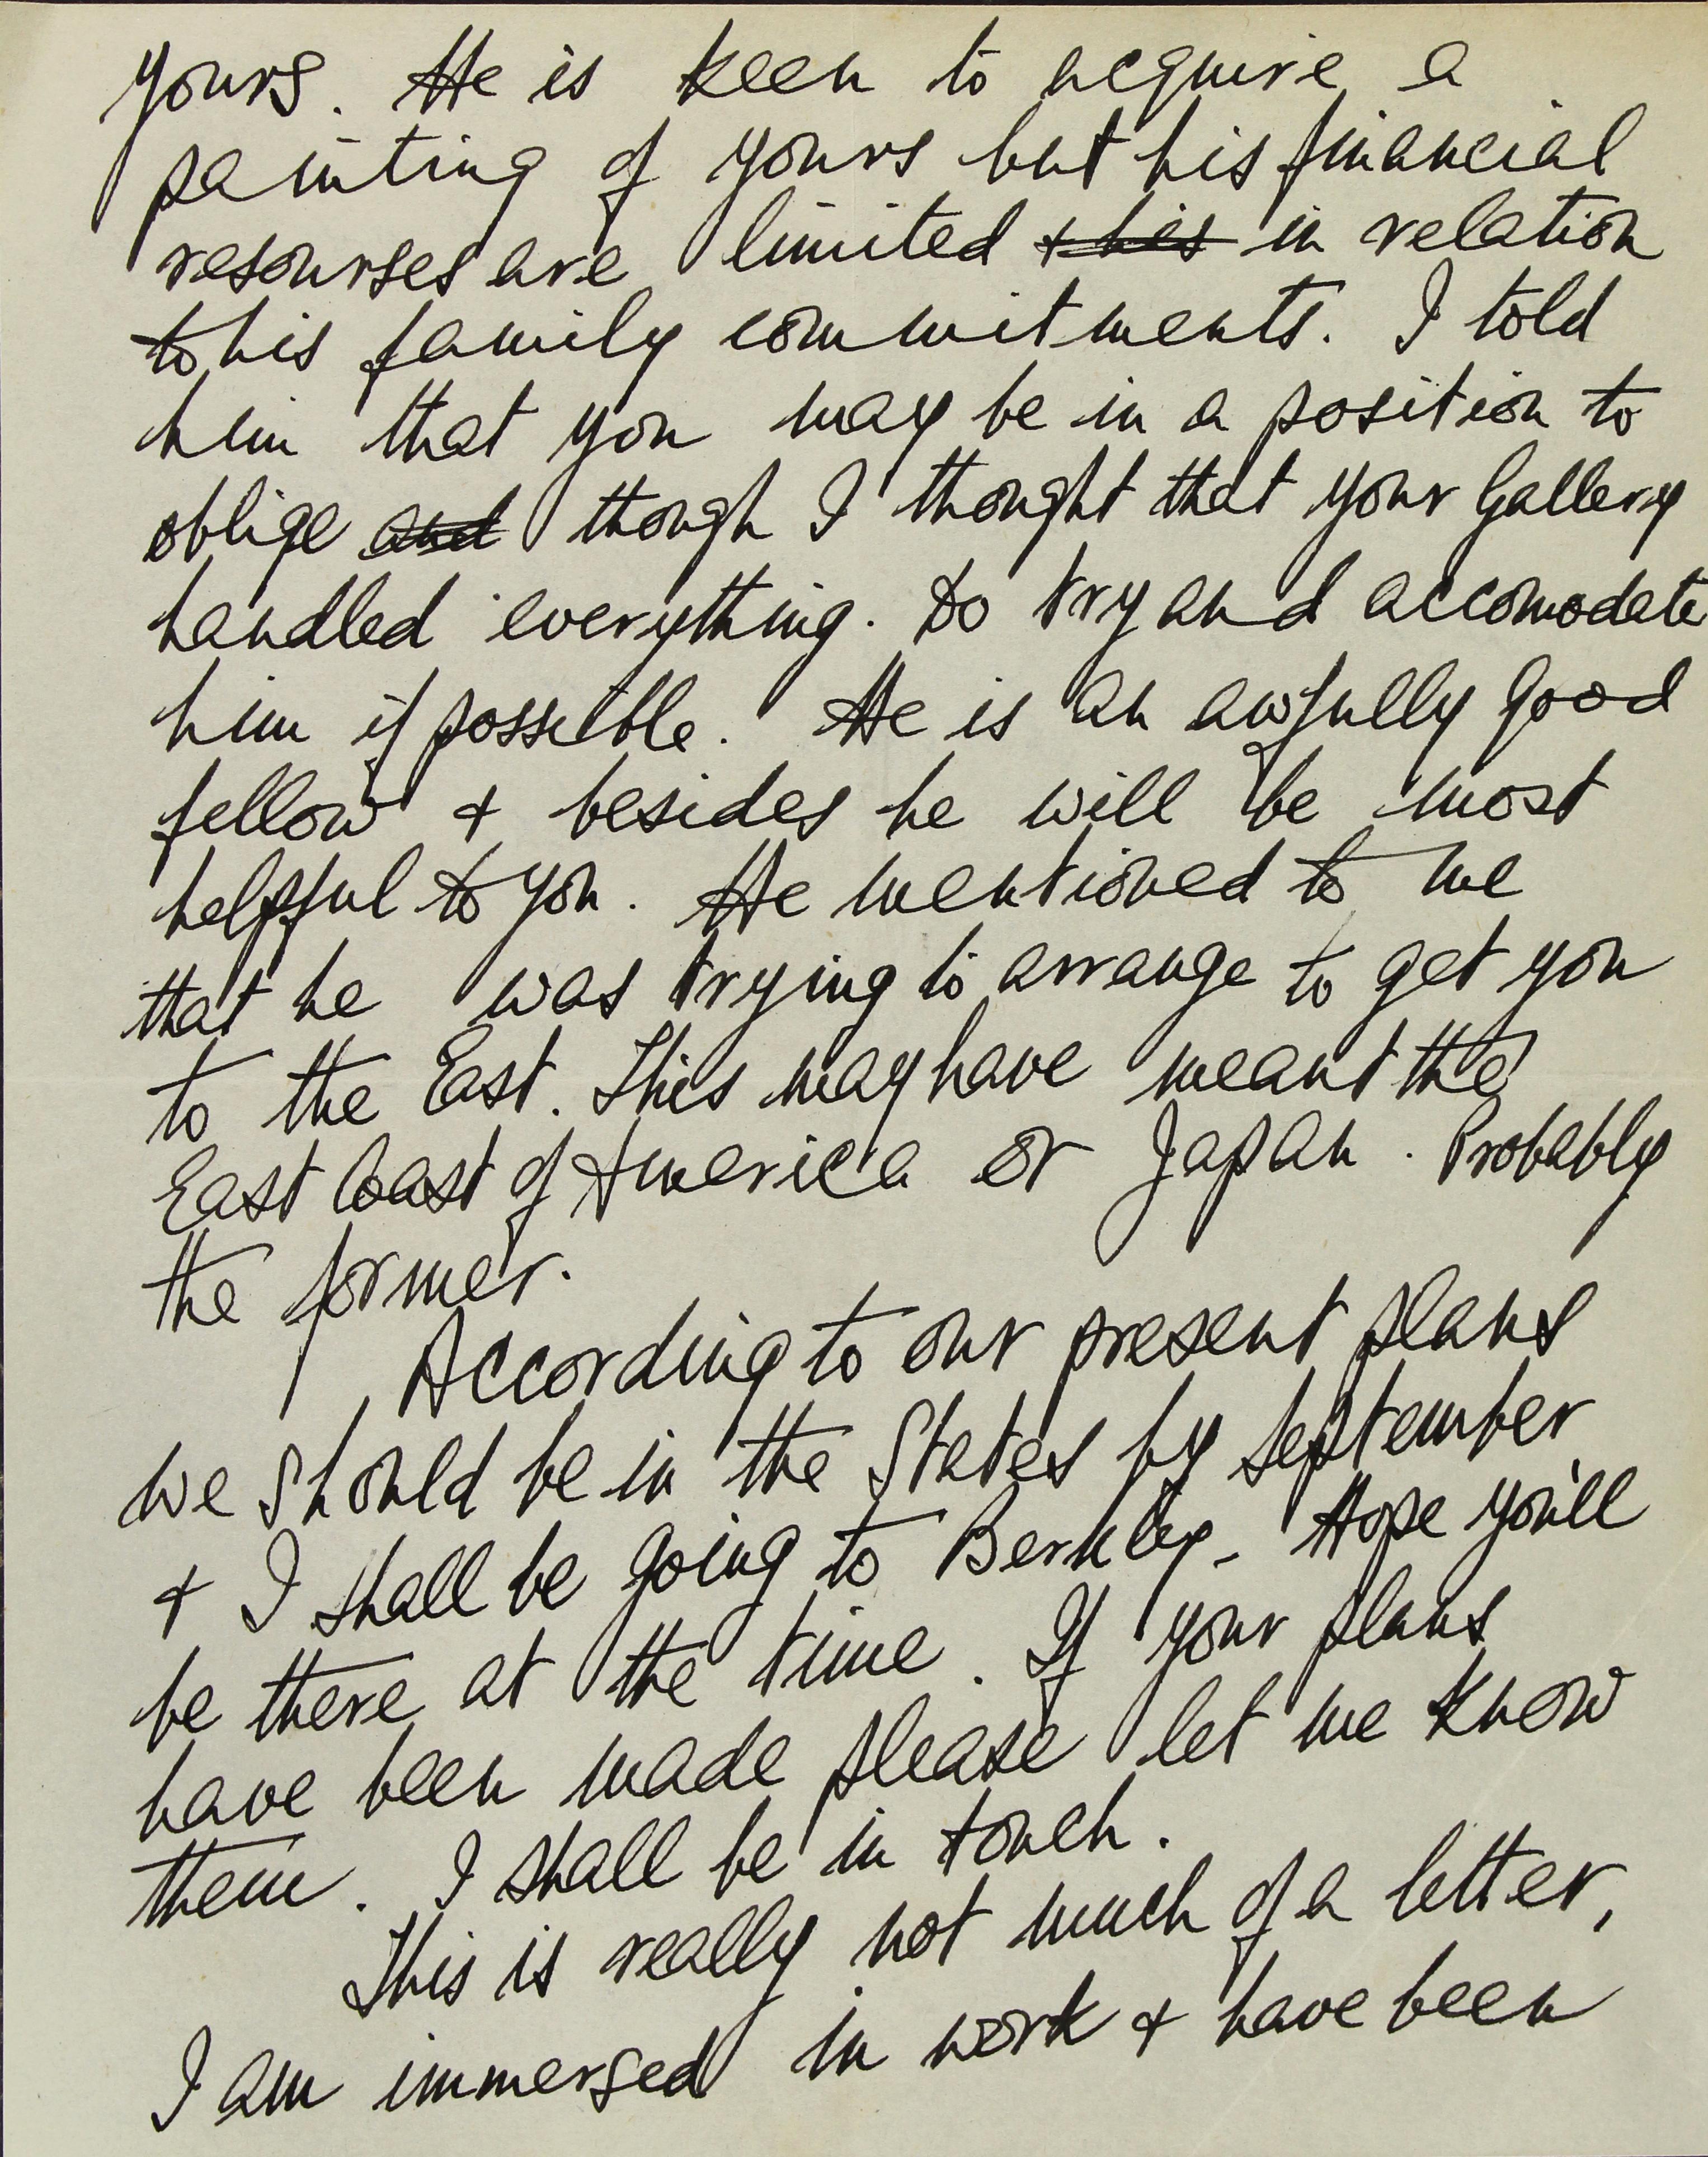 yours. He is keen to acquire a
painting of yours but his financial
resourses are limited ~~+ his~~ in relation
to his family commitments. I told
him that you may be in a position to
oblige ~~and~~ though I thought that your Gallery
handled everything. Do try and accomodate
him if possible. He is an awfully good
fellow + besides he will be most
helpful to you. He mentioned to me
that he was trying to arrange to get you
to the East. This may have meant the
East Coast of America or Japan. Probably
the former.
According to our present plans
we should be in the States by September
+ I shall be going to Berkley. Hope you'll
be there at the time. If your plans
have been made please let me know
them. I shall be in touch.
This is really not much of a letter,
I am immersed in work + have been